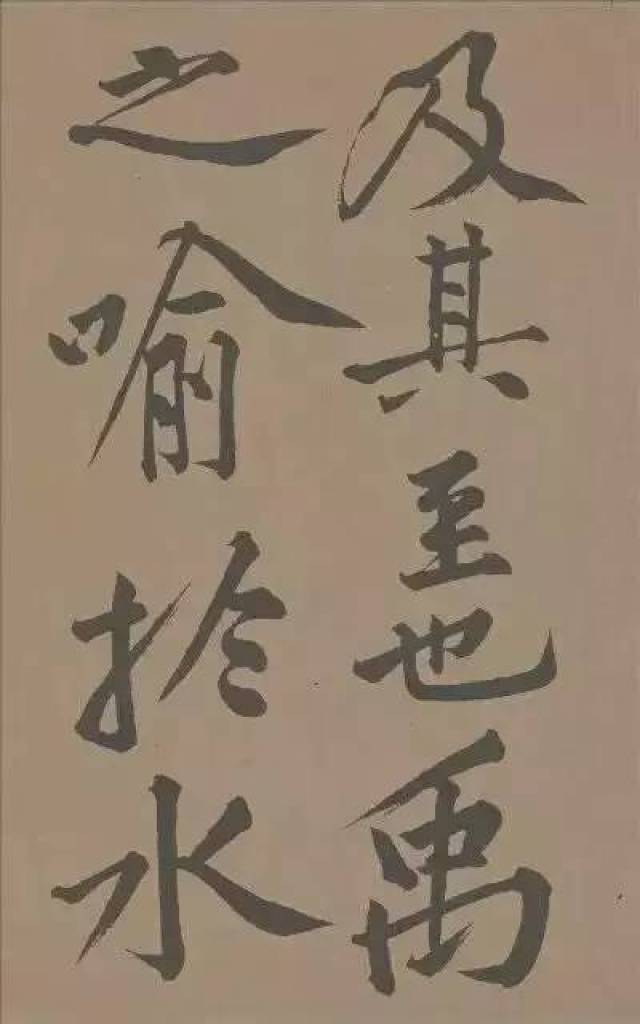 及其至也禹
之喻於水